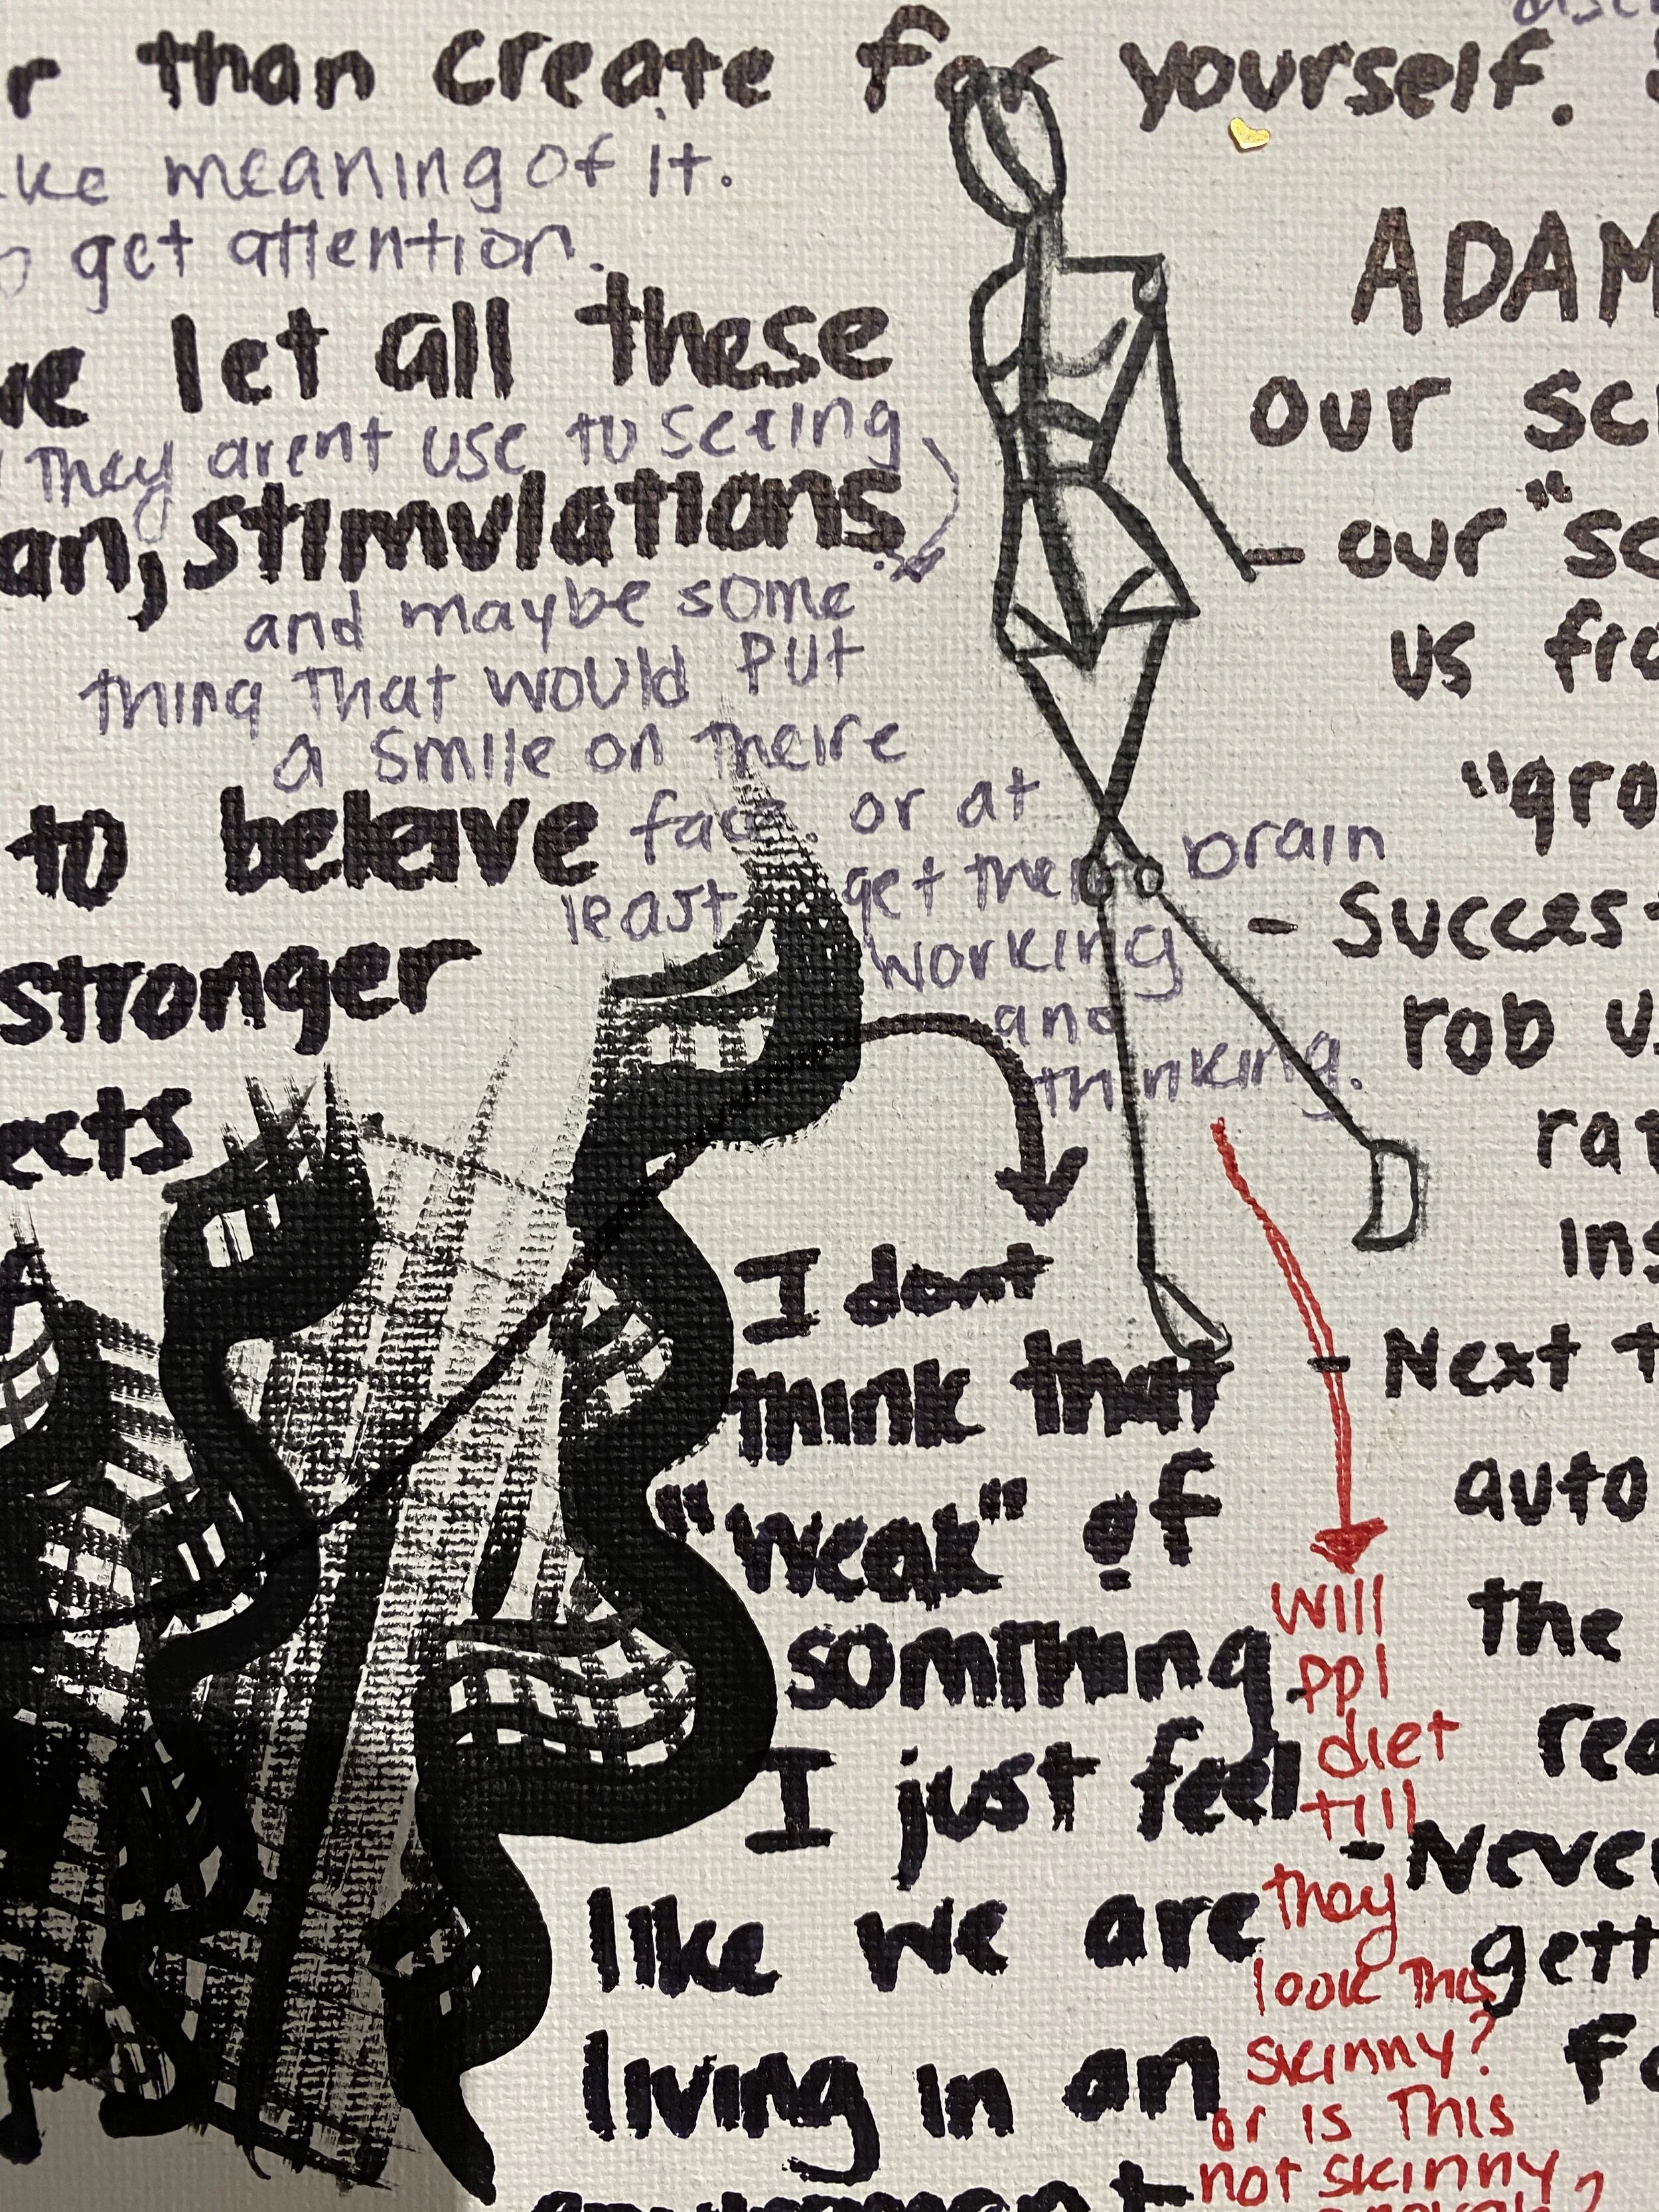 r than create for yourself.
ke meaning of it.
get attention.
ve let all these
They arent use to seeing
an, stimulations.
and maybe some
thing that would put
a smile on theire
face. or at
least get their brain
working
and
thinking.
to beleive
stronger
ects
I dont
think that
"weak" of
somthing
I just feel
like we are
living in an
will
ppl
diet
till
they
look this
skinny?
or is this
not skinny
?
ADAM
our sc
- our "sc
us fro
"gro
- Succes
rob u
rat
ins
- Next t
auto
the
rea
- Never
gett
fo